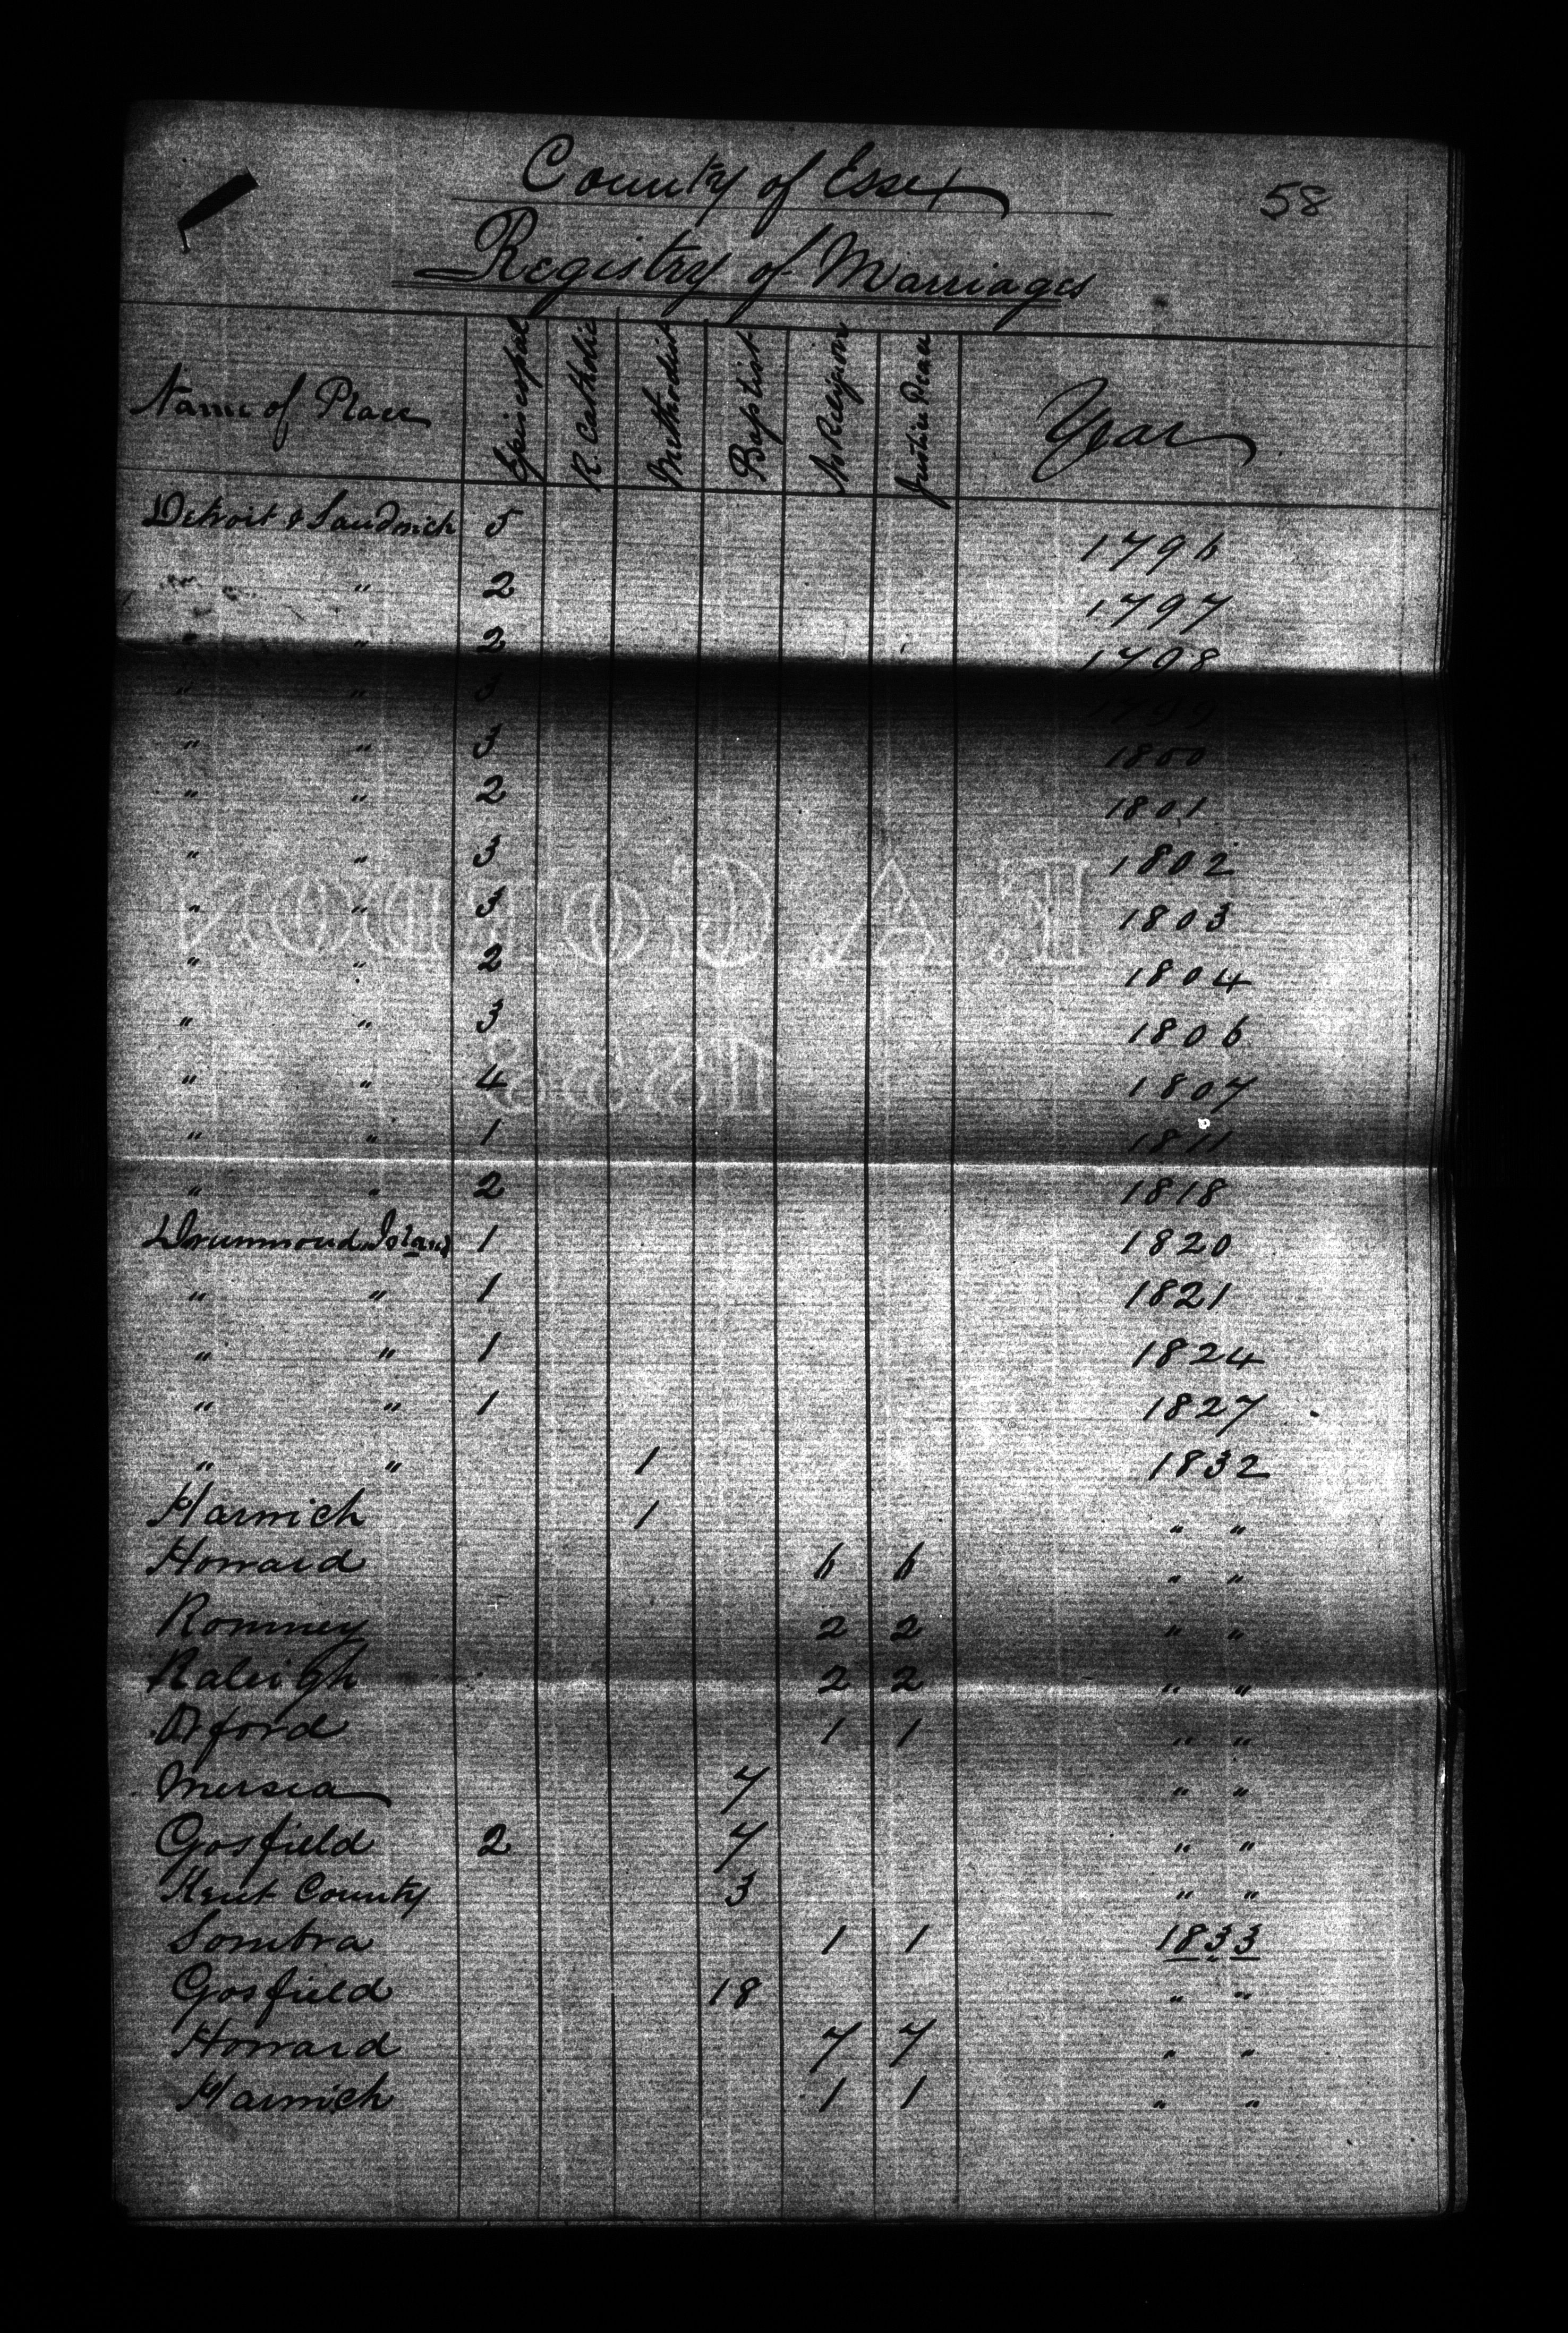 58
County of Essex
Registry of Marriages
Name of Place Episcopal R. Catholic Methodist Baptist No Religion Justice Peace Year
Detroit & Sandwich 5 1796
" " 2 1797
" " 2 1798
" " 3 1799
" " 3 1800
" " 2 1801
" " 3 1802
" " 3 1803
" " 2 1804
" " 3 1806
" " 4 1807
" " 1 1811
" " 2 1818
Drummond Island 1 1820
" " 1 1821
" " 1 1824
" " 1 1827
" " 1 1832
Harwich 1 " "
Howard 6 6 " "
Romney 2 2 " "
Raleigh 2 2 " "
Orford 1 1 " "
Mersea 7 " "
Gosfield 2 7 " "
Kent County 3 " "
Sombra 1 1 1833
Gosfield 18 " "
Howard 7 7 " "
Harwich 1 1 " "